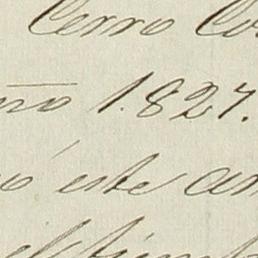 Cerro Co
año 1.827.
ó este an